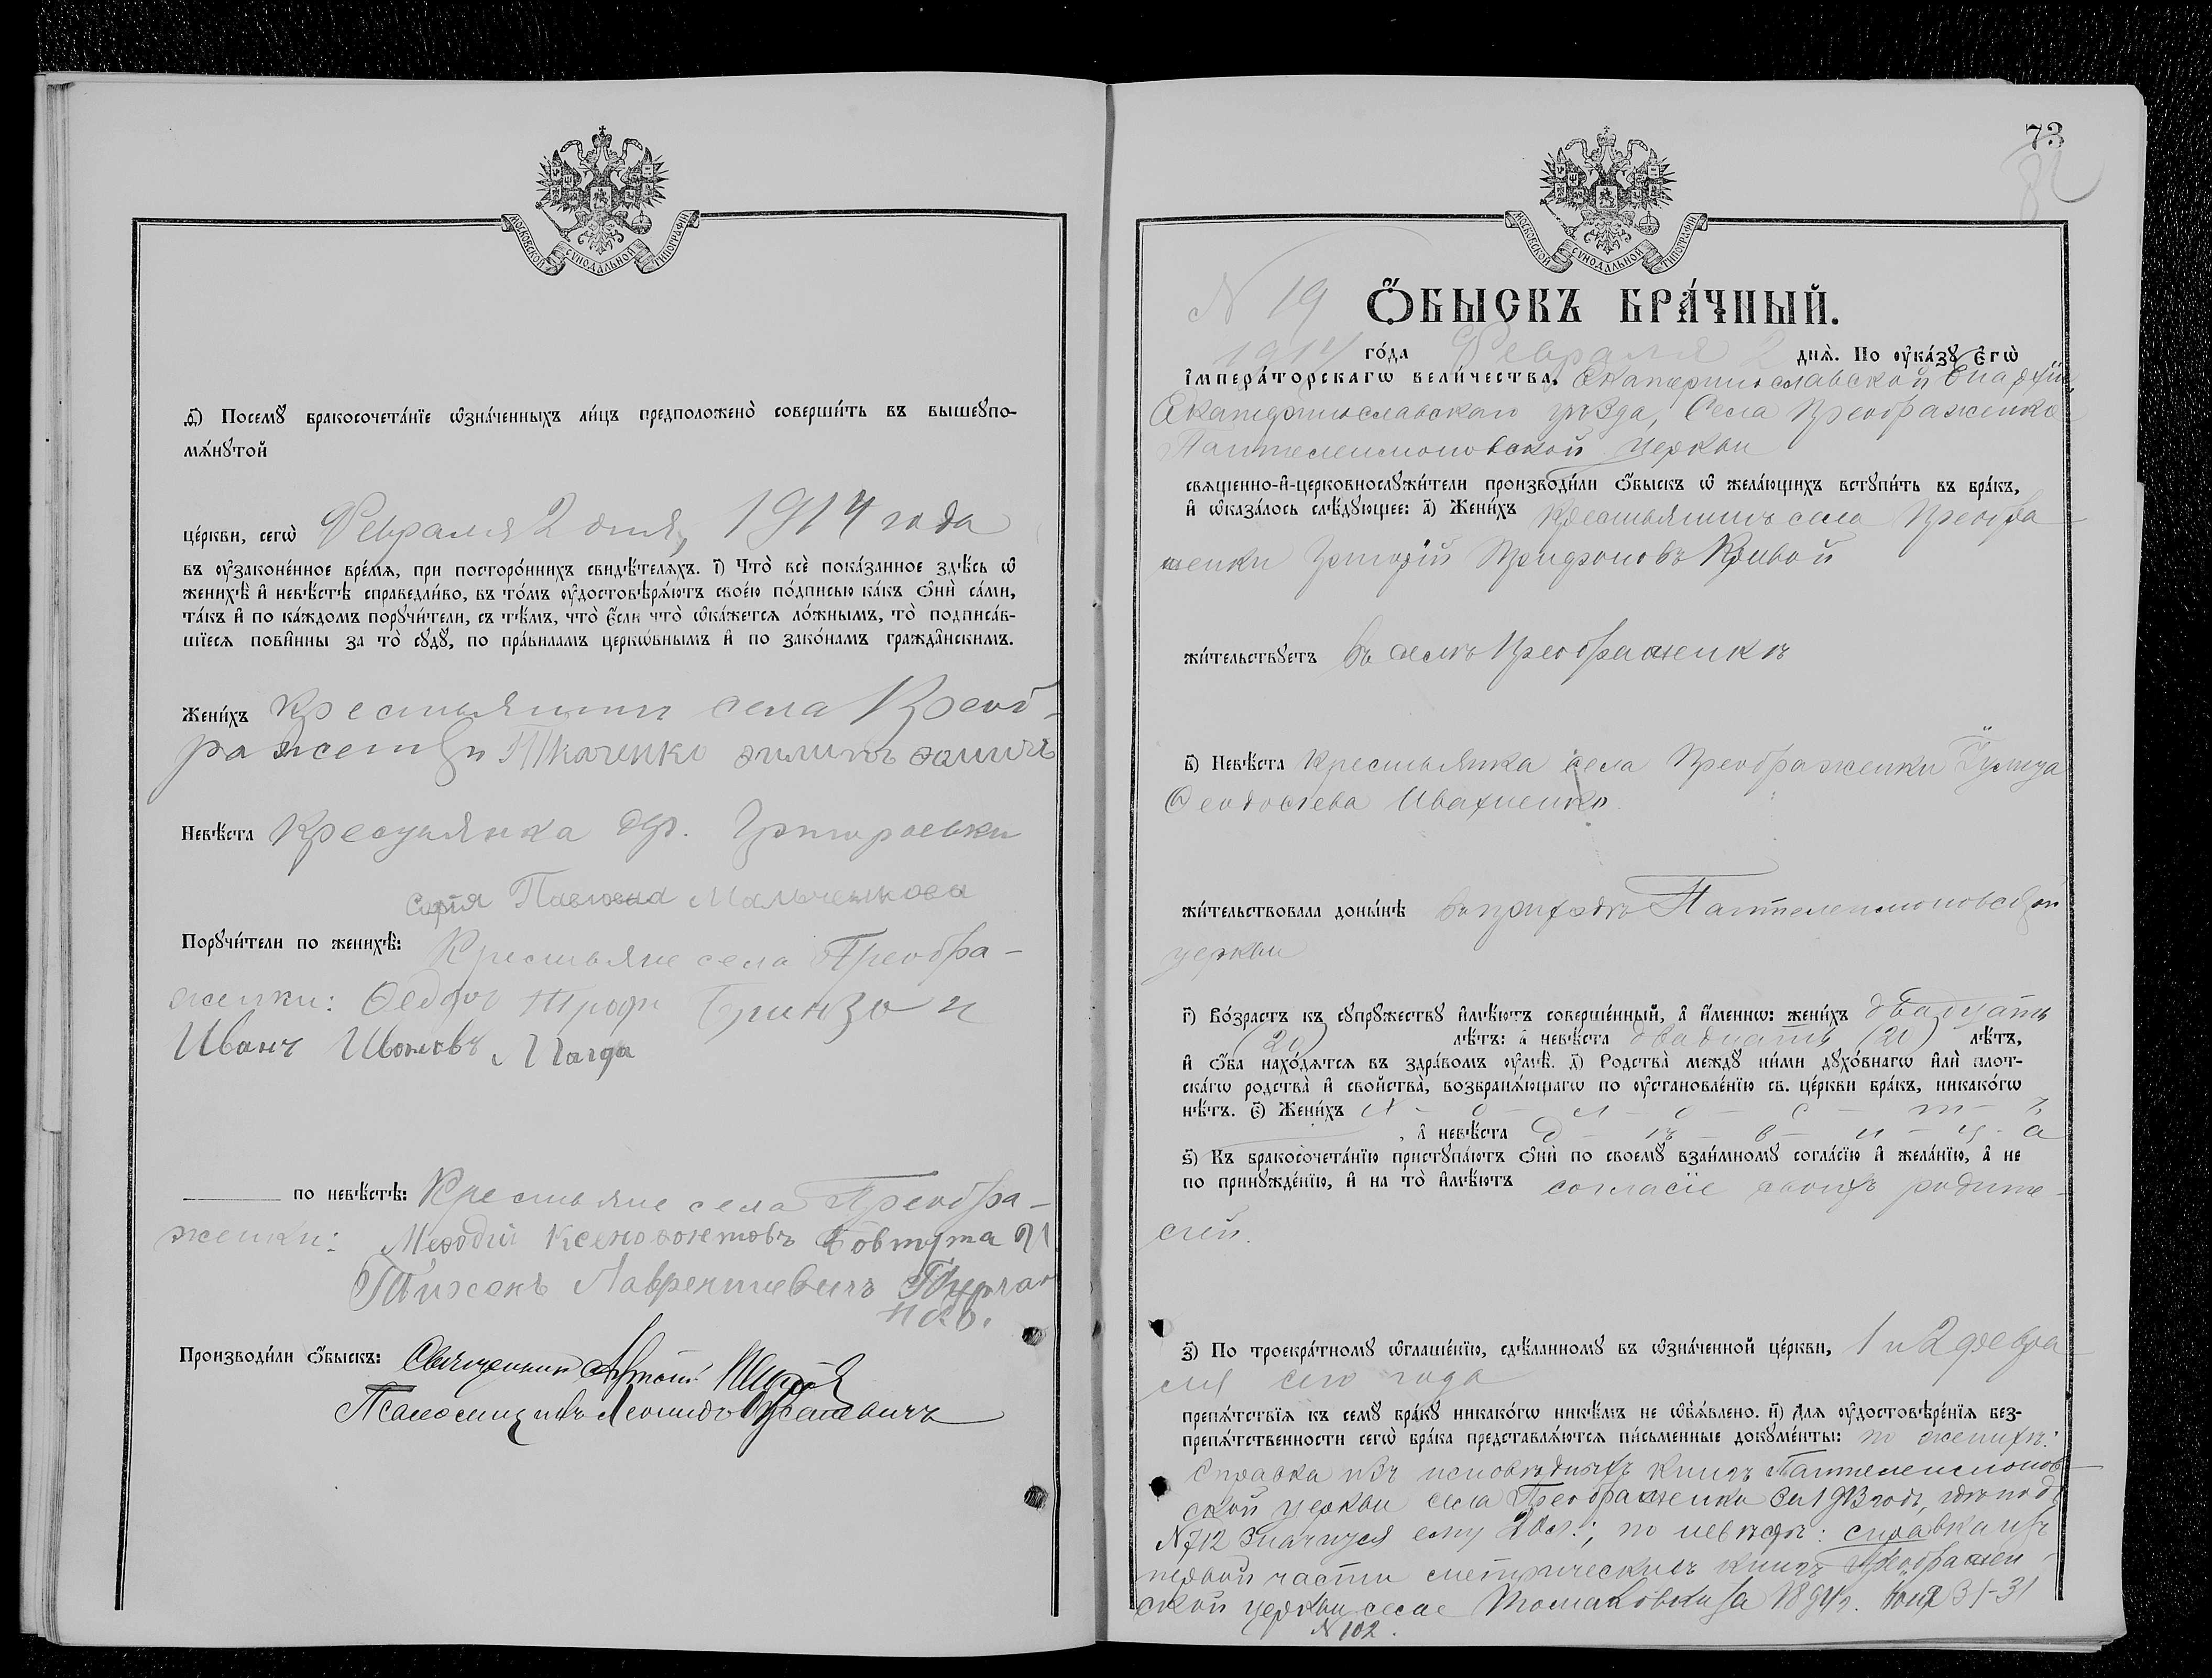 МОСКОВСКОЙ СѴНОДАЛЬНОЙ ТИПОГРАФІИ
ѳ҃) Посемꙋ̀ бракосочета́нїе ѡ҆зна́ченныхъ ли́цъ предположено̀ соверши́ть въ вышеꙋпо-
мѧ́нꙋтой
це́ркви, сегѡ̀ Февраля 2 дня, 1914 года
въ ᲂу҆законе́нное вре́мѧ, при посторо́ннихъ свидѣ́телѧхъ. і҃) Что̀ всѐ пока́занное здѣ́сь ѡ҆
женихѣ̀ и҆ невѣ́стѣ справедли́во, въ то́мъ ᲂу҆достовѣрѧ́ютъ свое́ю по́дписью ка́къ ѻ҆нѝ са́ми,
та́къ и҆ по ка́ждомъ порꙋчи́тели, съ тѣ́мъ, что̀ є҆́сли что̀ ѡ҆ка́жетсѧ ло́жнымъ, то̀ подписа́в-
шїесѧ пови̂нны за то̀ сꙋдꙋ̀, по пра́виламъ церкѡ́внымъ и҆ по зако́намъ гражда̂нскимъ.
Жени́хъ Крестьянин села Преоб-
раженки Ткаченко
Невѣ́ста Крестьянка дер. Григорьевки
Софія Павлова Мальченкова
Порꙋчи́тели по женихѣ̀: Крестьяне села Преобра-
женки: Ѳедоръ Троф Бринзо и
Иванъ Ивановъ
по невѣ́стѣ: Крестьяне села Преобра-
женки: Меѳодій Ксенофонтовъ Бовтута и
Тихонъ Лаврентіевичъ
Производи́ли ѻ҆́быскъ: Священникъ Антоній
Псаломщикъ Леонидъ
73
82
МОСКОВСКОЙ СѴНОДАЛЬНОЙ ТИПОГРАФІИ
N 19 Ѻ҆́БЫСКЪ БРА́ЧНЫЙ.
1914 го́да Февраля 2 днѧ̀. По ᲂу҆ка́зꙋ Є҆гѡ̀
І҆мпера́торскагѡ вели́чества, Екатеринославской Епархіи,
Екатеринославскаго уѣзда, Села Преображенки
Пантелеимоновской церкви
свѧще́нно-и҆-церковнослꙋжи́тели производи́ли ѻ҆́быскъ ѡ҆ жела́ющихъ встꙋпи́ть въ бра́къ,
и҆ ѡ҆каза́лось слѣ́дꙋющее: а҃) Жени́хъ Крестьянинъ села Преобра-
женки Григорій Трифоновъ Кривой
жи́тельствꙋетъ въ селѣ Преображенкѣ
в҃) Невѣ́ста Крестьянка села Преображенки
Ѳеодосіева Ивахненко
жи́тельствовала доны́нѣ въ приходѣ Пантелеимоновской
церкви
г҃) Во́зрастъ къ сꙋпрꙋ́жествꙋ и҆мѣ́ютъ соверше́нный, а҆ и҆́меннѡ: жени́хъ двадцать
(20) лѣ́тъ: а҆ невѣ́ста двадцать (20) лѣ́тъ,
и҆ ѻ҆́ба нахо́дѧтсѧ въ здра́вомъ ᲂу҆мѣ̀. д҃) Родства̀ междꙋ̀ ни́ми дꙋхо́внагѡ и҆лѝ плот-
ска́гѡ родства̀ и҆ сво́йства̀, возбранѧ́ющагѡ по ᲂу҆становле́нїю св. це́ркви бра́къ, никако́гѡ
нѣ́тъ. є҃) Жени́хъ х - о - л - о - с - т - ъ
, а҆ невѣ́ста д - ѣ - в - и - ц - а
ѕ҃) Къ бракосочета́нїю пристꙋпа́ютъ ѻ҆нѝ по своемꙋ̀ взаи́мномꙋ согла́сїю и҆ жела́нїю, а҆ не
по принꙋжде́нїю, и҆ на то̀ и҆мѣ́ютъ согласіе своихъ родите-
лей.
з҃) По троекра́тномꙋ ѡ҆глаше́нїю, сдѣ́ланномꙋ въ ѡ҆зна́ченной це́ркви, 1 и 2 февра-
ля сего года
препѧ́тствїѧ къ семꙋ̀ бра́кꙋ никако́гѡ никѣ́мъ не ѡ҆б̾ѧ́влено. и҃) Длѧ ᲂу҆достовѣре́нїѧ без-
препѧ́тственности сегѡ̀ бра́ка представлѧ́ютсѧ пи́сьменные докꙋме́нты: по женихѣ:
Справка изъ исповѣдныхъ книгъ Пантелеимонов-
ской церкви села Преображенки за 1913 годъ, гдѣ подъ
№ 712 значится ему 20 л.; по невѣстѣ: справка изъ
первой части метрическихъ книгъ Преображен-
ской церкви села Томаковки за 1894 г. 31-31
№ 102.